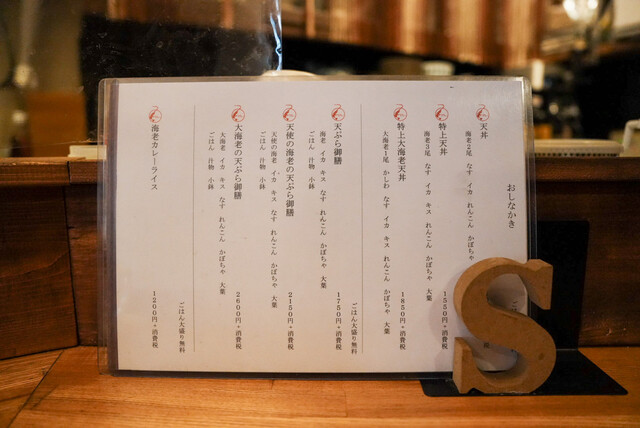 おしながき
天丼
海老2尾 なす イカ キス れんこん かぼちゃ 大葉
特上天丼
海老3尾 なす イカ キス れんこん かぼちゃ 大葉
1550円+消費税
特上大海老天丼
大海老1尾 かしわ なす イカ キス れんこん かぼちゃ 大葉
1850円+消費税
天ぷら御膳
海老 イカ キス なす れんこん かぼちゃ 大葉
ごはん 汁物 小鉢
1750円+消費税
ごはん大盛り無料
天使の海老の天ぷら御膳
天使の海老 イカ キス なす れんこん かぼちゃ 大葉
ごはん 汁物 小鉢
2150円+消費税
大海老の天ぷら御膳
大海老 イカ キス なす れんこん かぼちゃ 大葉
ごはん 汁物 小鉢
2600円+消費税
ごはん大盛り無料
海老カレーライス
1200円+消費税
S